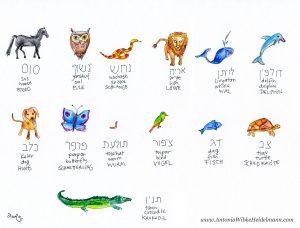 סוס
sus
horse
PFERD
ינשוף
yanshuf
owl
EULE
נחש
nachash
snake
SCHLANGE
אריה
arje
lion
LÖWE
לויתן
livyatan
whale
WAL
דולפין
dolfin
dolphin
DELPHIN
כלב
kelev
dog
HUND
פרפר
parpar
butterfly
SCHMETTERLING
תולעת
tola'hat
worm
WURM
ציפור
tsipor
bird
VOGEL
דג
dag
fish
FISCH
צב
tsav
turtle
SCHILDKRÖTE
תנין
tanin
crocodile
KROKODIL
www.AntoniaWibkeHeidelmann.com